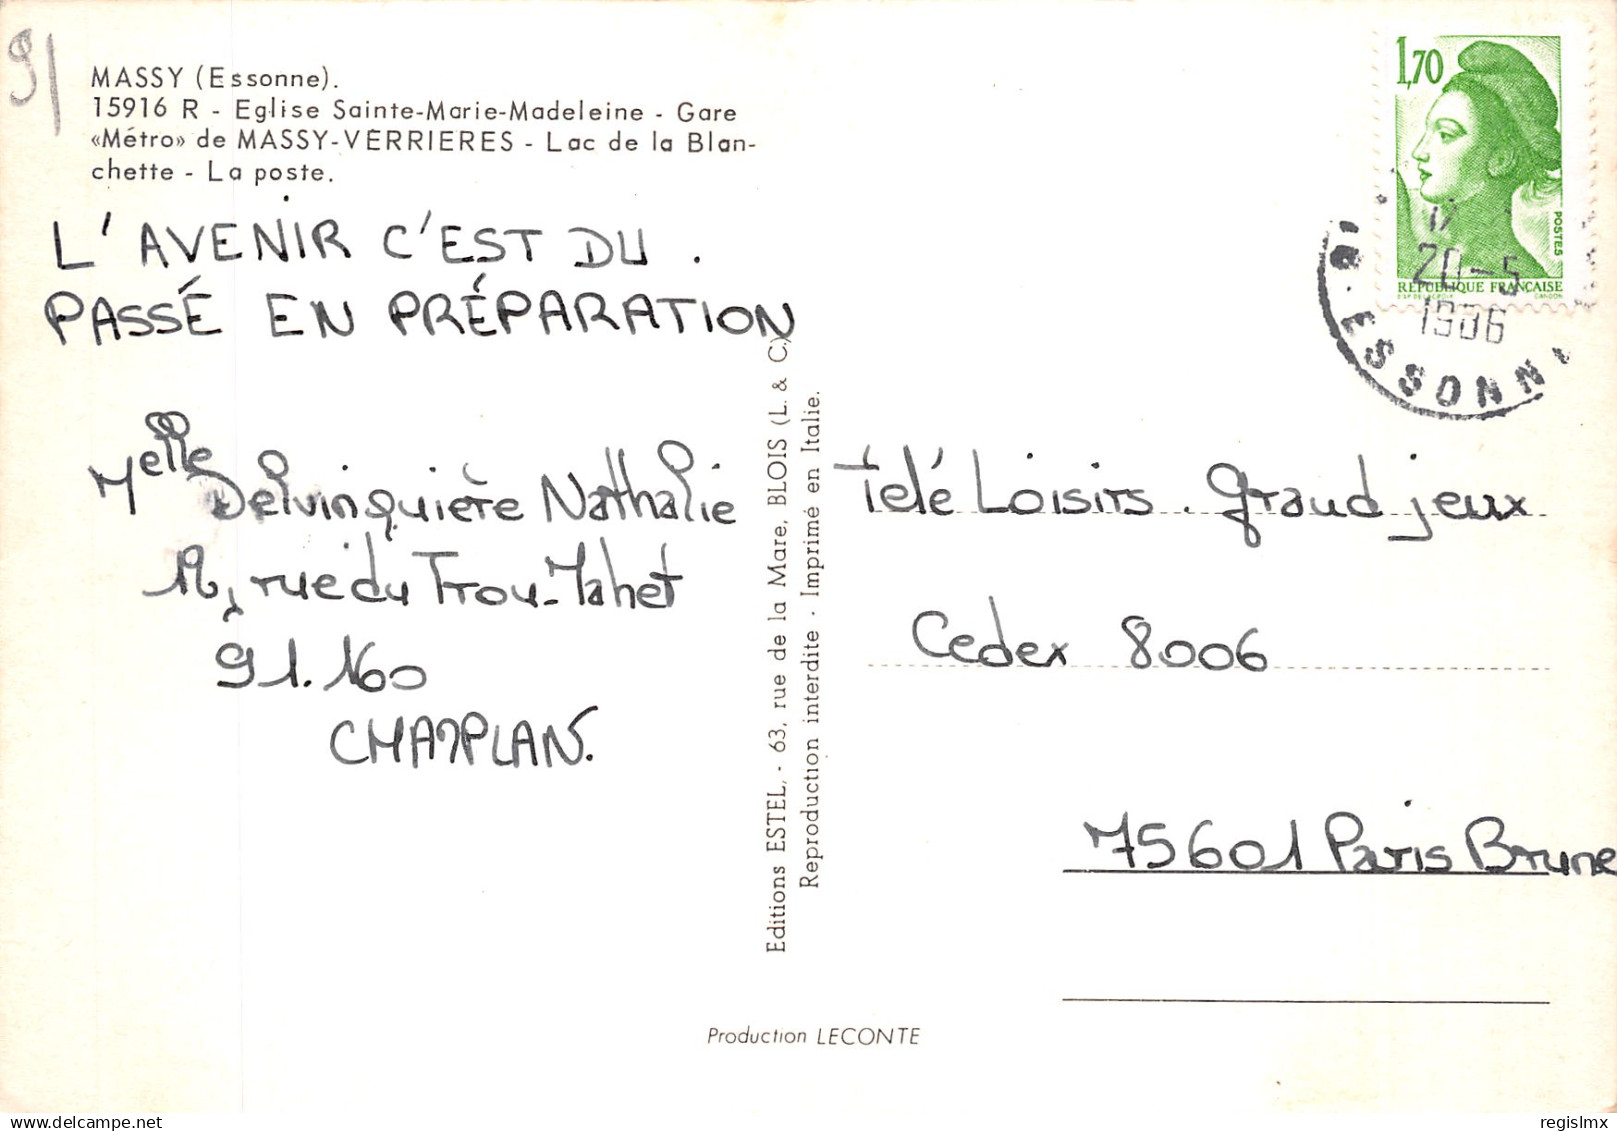 91
MASSY (Essonne).
15916 R - Eglise Sainte-Marie-Madeleine - Gare
«Métro» de MASSY-VERRIERES - Lac de la Blan-
chette - La poste.
L'AVENIR C'EST DU.
PASSÉ EN PRÉPARATION
Melle Delvinquière Nathalie
rue du Trou-Mahet
91.160
CHAMPLAN.
Editions ESTEL, - 63, rue de la Mare, BLOIS (L. & C.)
Reproduction interdite - Imprimé en Italie.
1,70
POSTES
RÉPUBLIQUE FRANÇAISE
20-5
1986
ESSONN
Télé Loisirs. Grand jeux
Cedex 8006
75601 Paris Brune
Production LECONTE
regislmx